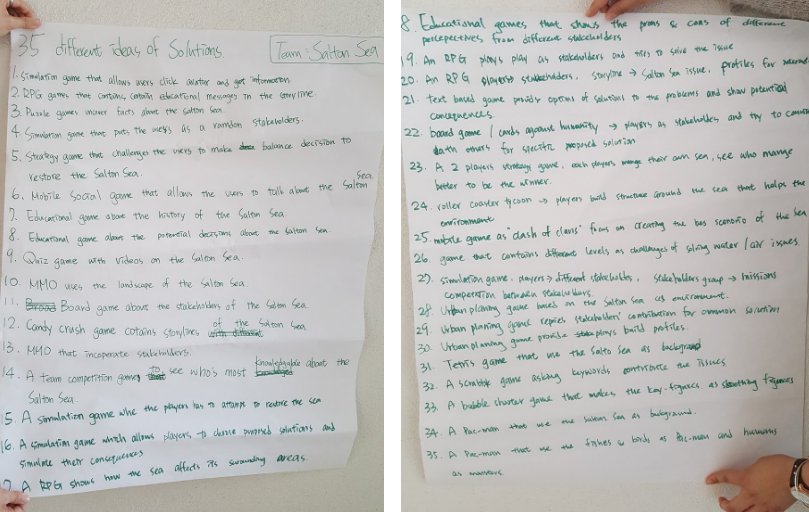 35 different ideas of Solutions.
Team: Salton Sea
1. Simulation game that allows users click avatar and get information.
2. RPG games that contains contain educational messages in the storyline.
3. Puzzle games uncover facts about the Salton Sea.
4. Simulation game that puts the users as a random stakeholders.
5. Strategy game that challenges the users to make balance decision to
restore the Salton Sea.
6. Mobile Social game that allows the users to talk about the Salton Sea.
7. Educational game about the history of the Salton Sea.
8. Educational game about the potential decisions about the Salton Sea.
9. Quiz game with videos on the Salton Sea.
10. MMO uses the landscape of the Salton Sea.
11. Board game about the stakeholders of the Salton Sea
12. Candy crush game cotains storylines of the Salton Sea
13. MMO that incoperate stakeholders.
14. A team competition game to see who's most knowledgable about the
Salton Sea.
15. A simulation game whe the players has to attamp to restore the sea
16. A simulation game which allows players to choose purposed solutions and
simulate their consequences
A RPG shows how the sea affects its surounding areas.
8. Educational games that shows the pros & cons of difference
percepectives from different stakeholders
19. An RPG plays play as stakeholders and tries to solve the issue
20. An RPG players stakeholders, storyline → Salton Sea issue, profiles for
21. text based game provids options of solutions to the problems and show potential
consequences.
22. board game / cards against humanity → players as stakeholdes and try to
others for specific proposed solution
23. A 2 players strategy game, each players mange their own sea, see who mange
better to be the winner.
24. roller coaster tycoon → players build structure around the sea that helps the
environment
25. mobile game as "clash of clans" focus on creating the bes scenario of the Sea
26. game that contains different levels as challenges of solving water / air issues.
27. simulation game, players → different stakeholdes, stakeholders group → missions
competition between stakeholders.
28. Urban planing game based on the Salton Sea as environment.
29. Urban planing game repies stakeholders' contribution for common solution
30. Urban planning game provide plays build profiles.
31. Tetris game that use the Salto Sea as background
32. A scrabble game asking keywords contribute the issues
33. A bubble shooter game that makes the key-figures as shooting figures
34. A Pac-man that use the Salton Sea as background.
35. A Pac-man that use the fishes & birds as Pac-man and humans
as monsters.